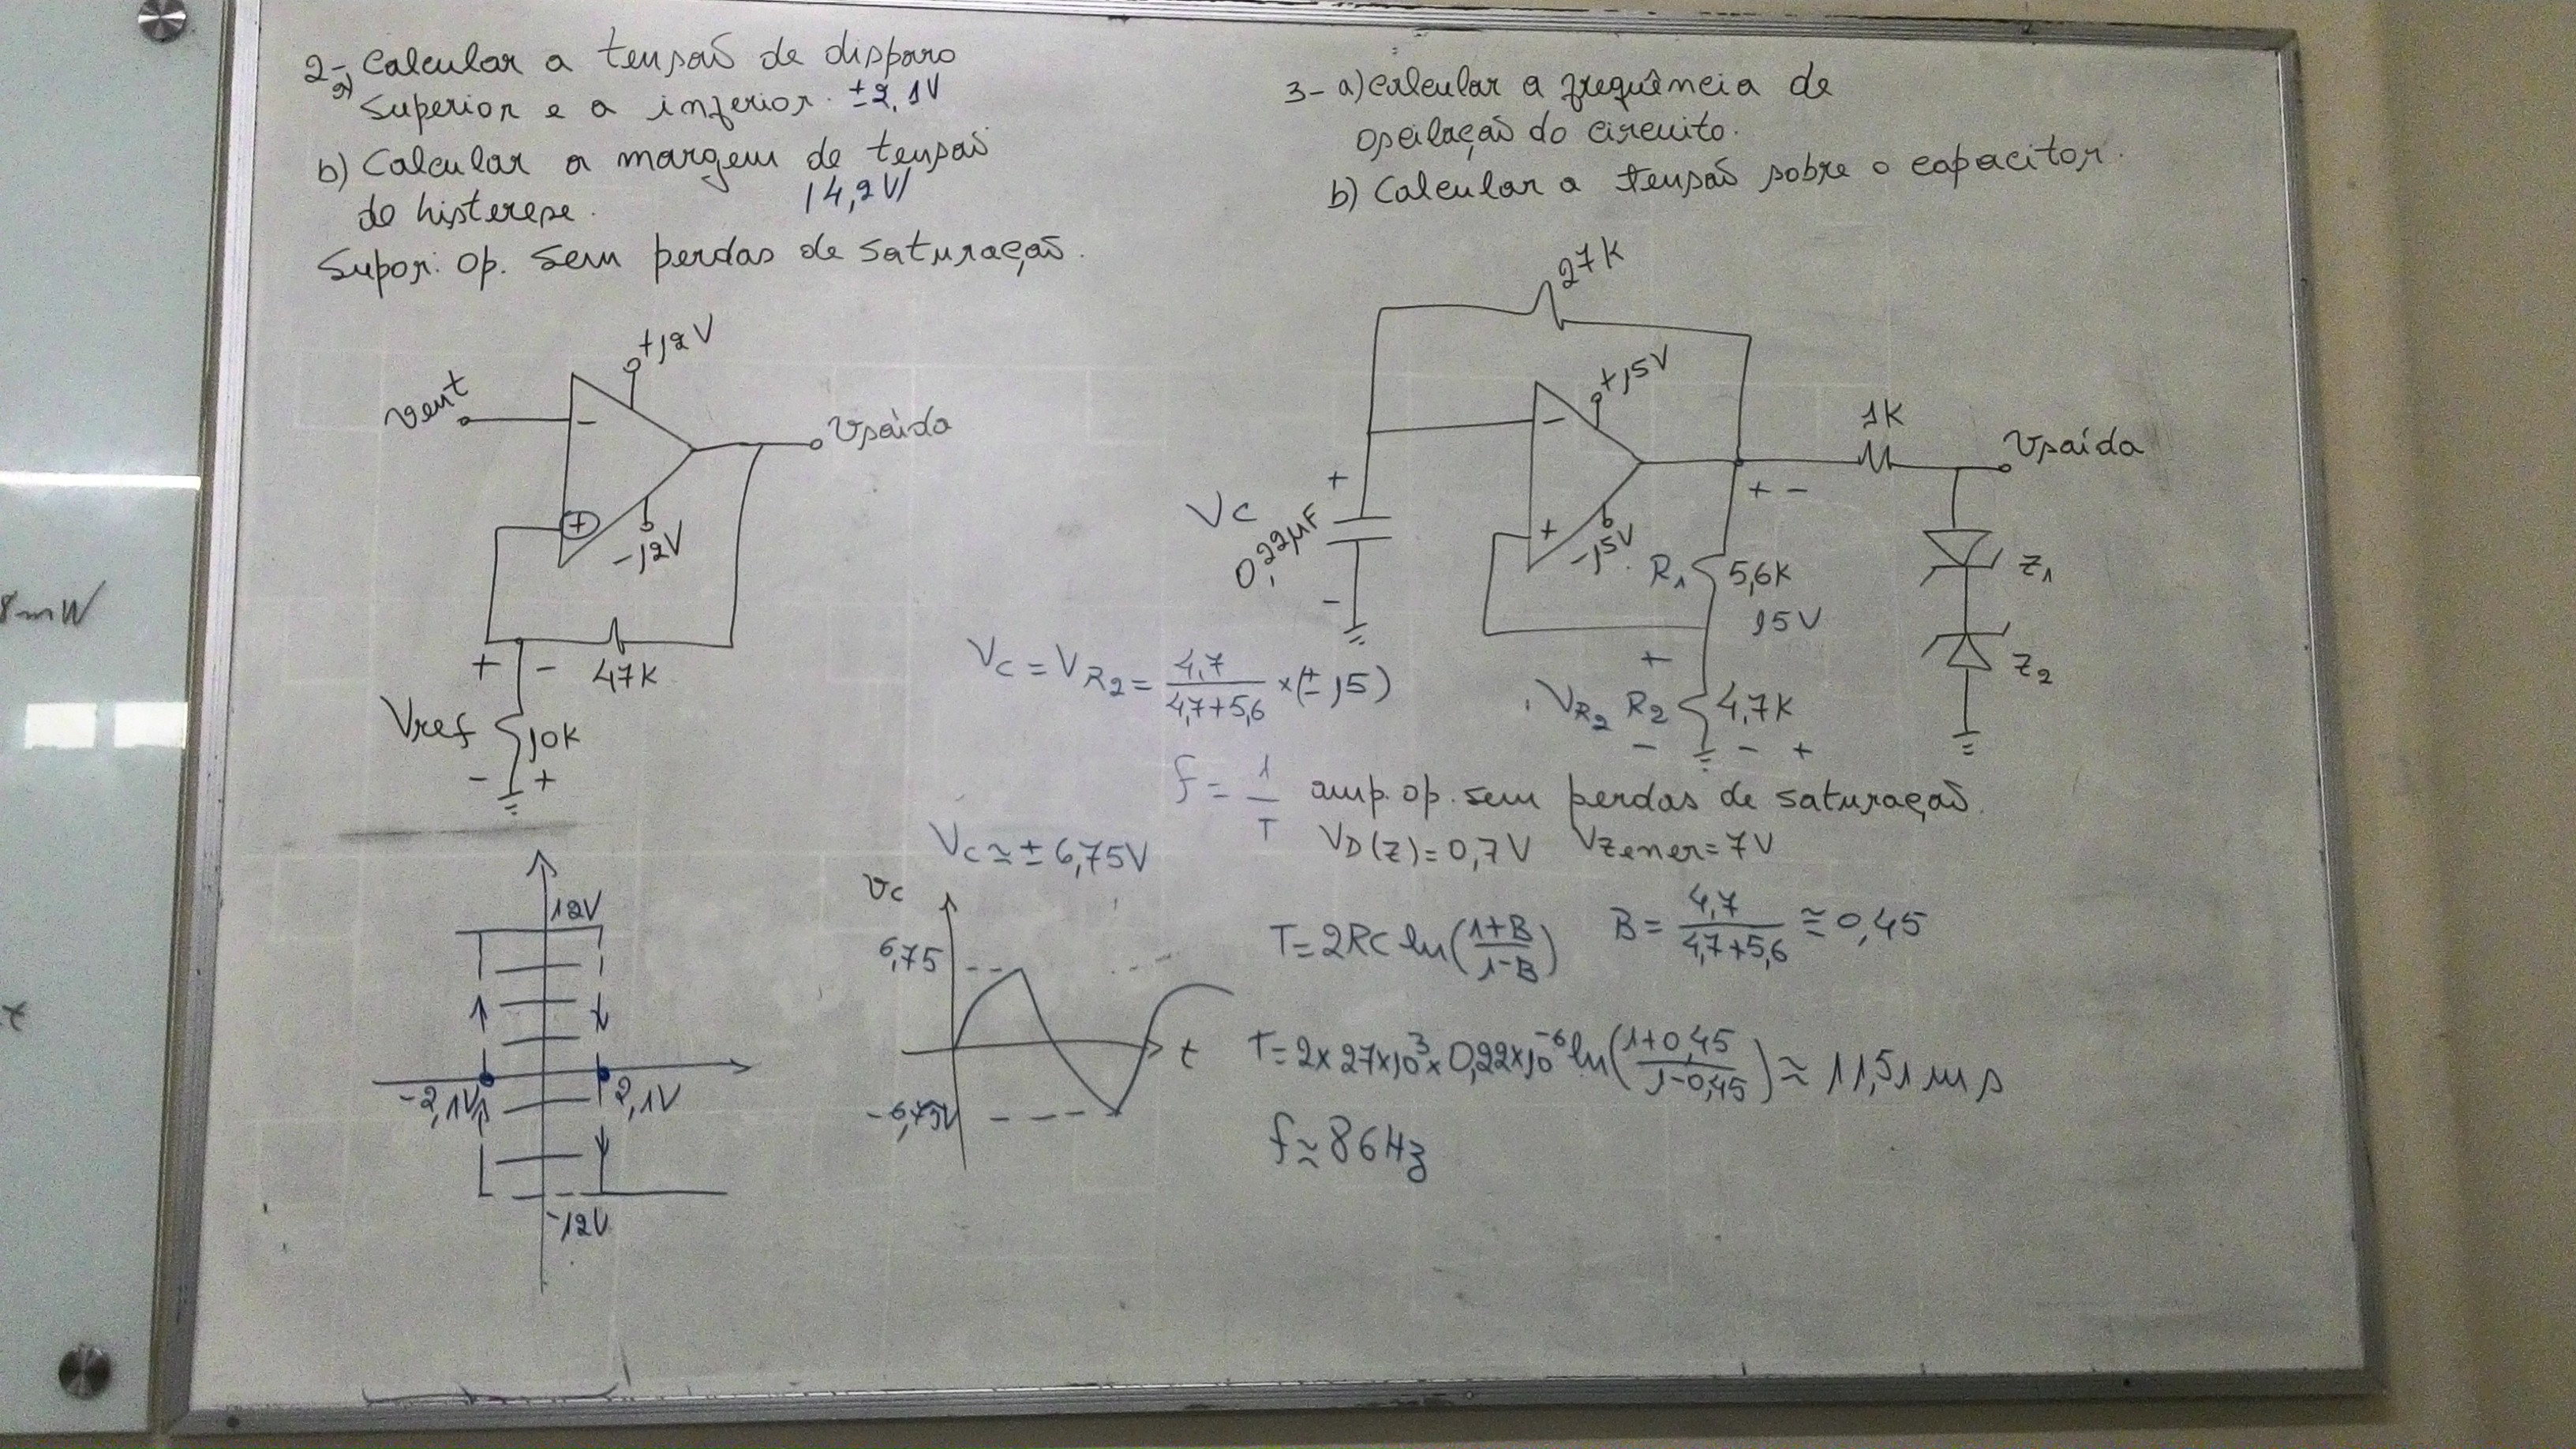 2- a) Calcular a tensão de disparo
superior e a inferior. ±2,1V
b) Calcular a margem de tensão
de histerese. |4,2V|
Supor: op. sem perdas de saturação.
+12V
vent
-
vsaída
+
-12V
+ - 47K
Vref 10K
- +
12V
-2,1V 2,1V
-12V
3- a) Calcular a frequência de
oscilação do circuito.
b) Calcular a tensão sobre o capacitor.
27K
+15V
-
1K
vsaída
+ -
+
VC
0,22µF
-
+
-15V
R1 5,6K
15V
Z1
Z2
+
VR2 R2 4,7K
- - +
VC = VR2 = 4,7 / 4,7+5,6 × (± 15)
f = 1 / T
amp. op. sem perdas de saturação.
VD(Z) = 0,7V Vzener = 7V
VC ≃ ± 6,75V
vc
6,75
-6,75V
t
T = 2RC ln(1+B / 1-B) B = 4,7 / 4,7+5,6 ≅ 0,45
T = 2×27×10³×0,22×10⁻⁶ ln(1+0,45 / 1-0,45) ≃ 11,51ms
f ≃ 86Hz
8mW